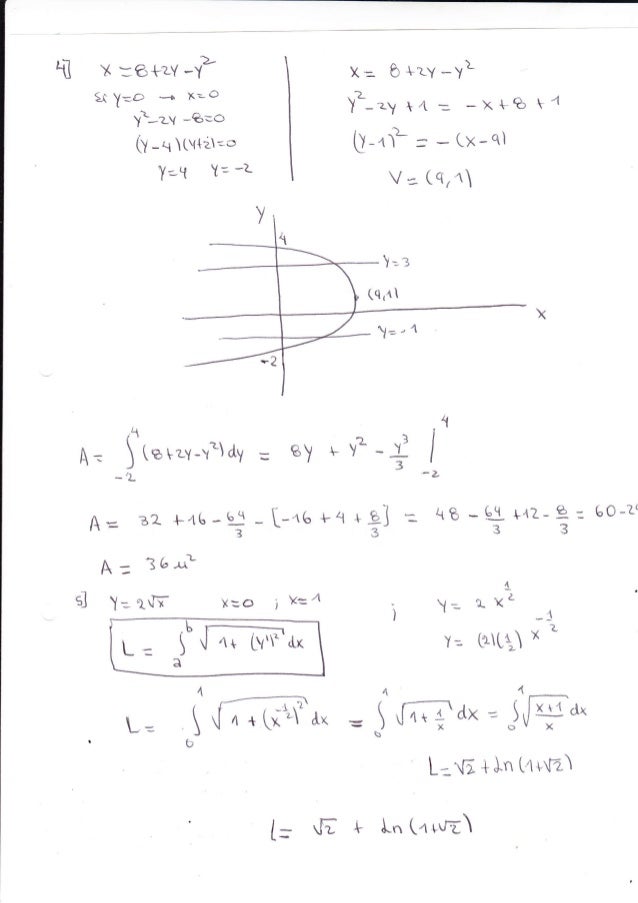 4] x = 8+2y-y²
si y=0 → x=0
y²-2y-8=0
(y-4)(y+2)=0
y=4 y=-2
x = 8+2y-y²
y²-2y+1 = -x+8+1
(y-1)² = -(x-9)
V = (9,1)
y
4
y=3
(9,1)
x
y=-1
-2
A = ∫₋₂⁴ (8+2y-y²)dy = 8y + y² - y³/3 |₋₂⁴
A = 32+16-64/3 - [-16+4+8/3] = 48 - 64/3 +12 - 8/3 = 60-24
A = 36 u²
5] y = 2√x x=0 ; x=1 ; y = 2 x^(1/2)
L = ∫ₐᵇ √(1+(y')²) dx y = (2)(1/2) x^(-1/2)
L = ∫₀¹ √(1+(x^(-1/2))²) dx = ∫₀¹ √(1+1/x) dx = ∫₀¹ √((x+1)/x) dx
L=√2+Ln(1+√2)
L = √2 + Ln(1+√2)